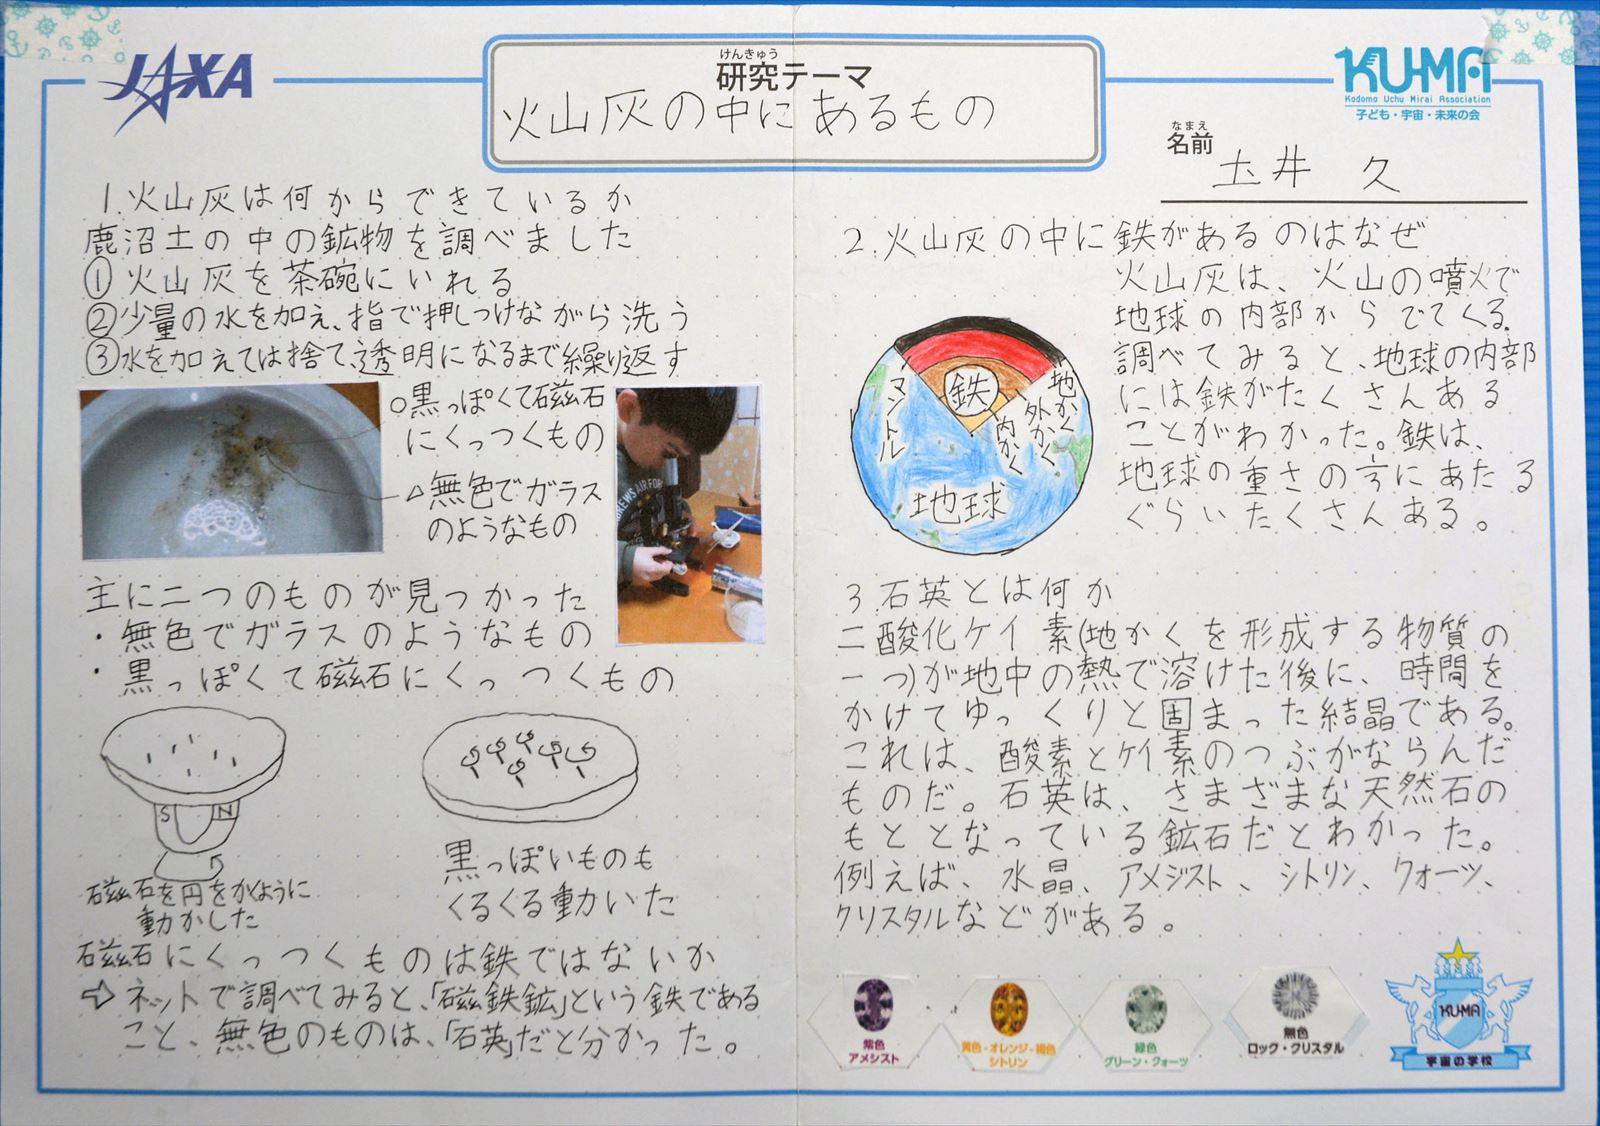 JAXA
けんきゅう
研究テーマ
火山灰の中にあるもの
KU-MA
Kodomo Uchu Mirai Association
子ども・宇宙・未来の会
なまえ
名前
土井 久
1.火山灰は何からできているか
鹿沼土の中の鉱物を調べました
①火山灰を茶碗にいれる
②少量の水を加え、指で押しつけながら洗う
③水を加えては捨て、透明になるまで繰り返す
○黒っぽくて磁石
にくっつくもの
△無色でガラス
のようなもの
主に二つのものが見つかった
・無色でガラスのようなもの
・黒っぽくて磁石にくっつくもの
S N
磁石を円をかくように
動かした
黒っぽいものも
くるくる動かいた
磁石にくっつくものは鉄ではないか
⇨ネットで調べてみると、「磁鉄鉱」という鉄である
こと、無色のものは、「石英」だと分かった。
2.火山灰の中に鉄があるのはなぜ
火山灰は、火山の噴火で
地球の内部からでてくる。
調べてみると、地球の内部
には鉄がたくさんある
ことがわかった。鉄は、
地球の重さの
にあたる
ぐらいたくさんある。
マントル
鉄
内かく
外かく
地かく
地球
3.石英とは何か
二酸化ケイ素(地かくを形成する物質の
一つ)が地中の熱で溶けた後に、時間を
かけてゆっくりと固まった結晶である。
これは、酸素とケイ素のつぶがならんだ
ものだ。石英は、さまざまな天然石の
もととなっている鉱石だとわかった。
例えば、水晶、アメジスト、シトリン、クォーツ、
クリスタルなどがある。
紫色
アメシスト
黄色-オレンジ-褐色
シトリン
緑色
グリーン・クォーツ
無色
ロック・クリスタル
KU-MA
宇宙の学校